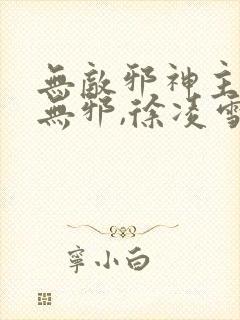 無敵邪神主
無邪,徐凌雪
寧小白